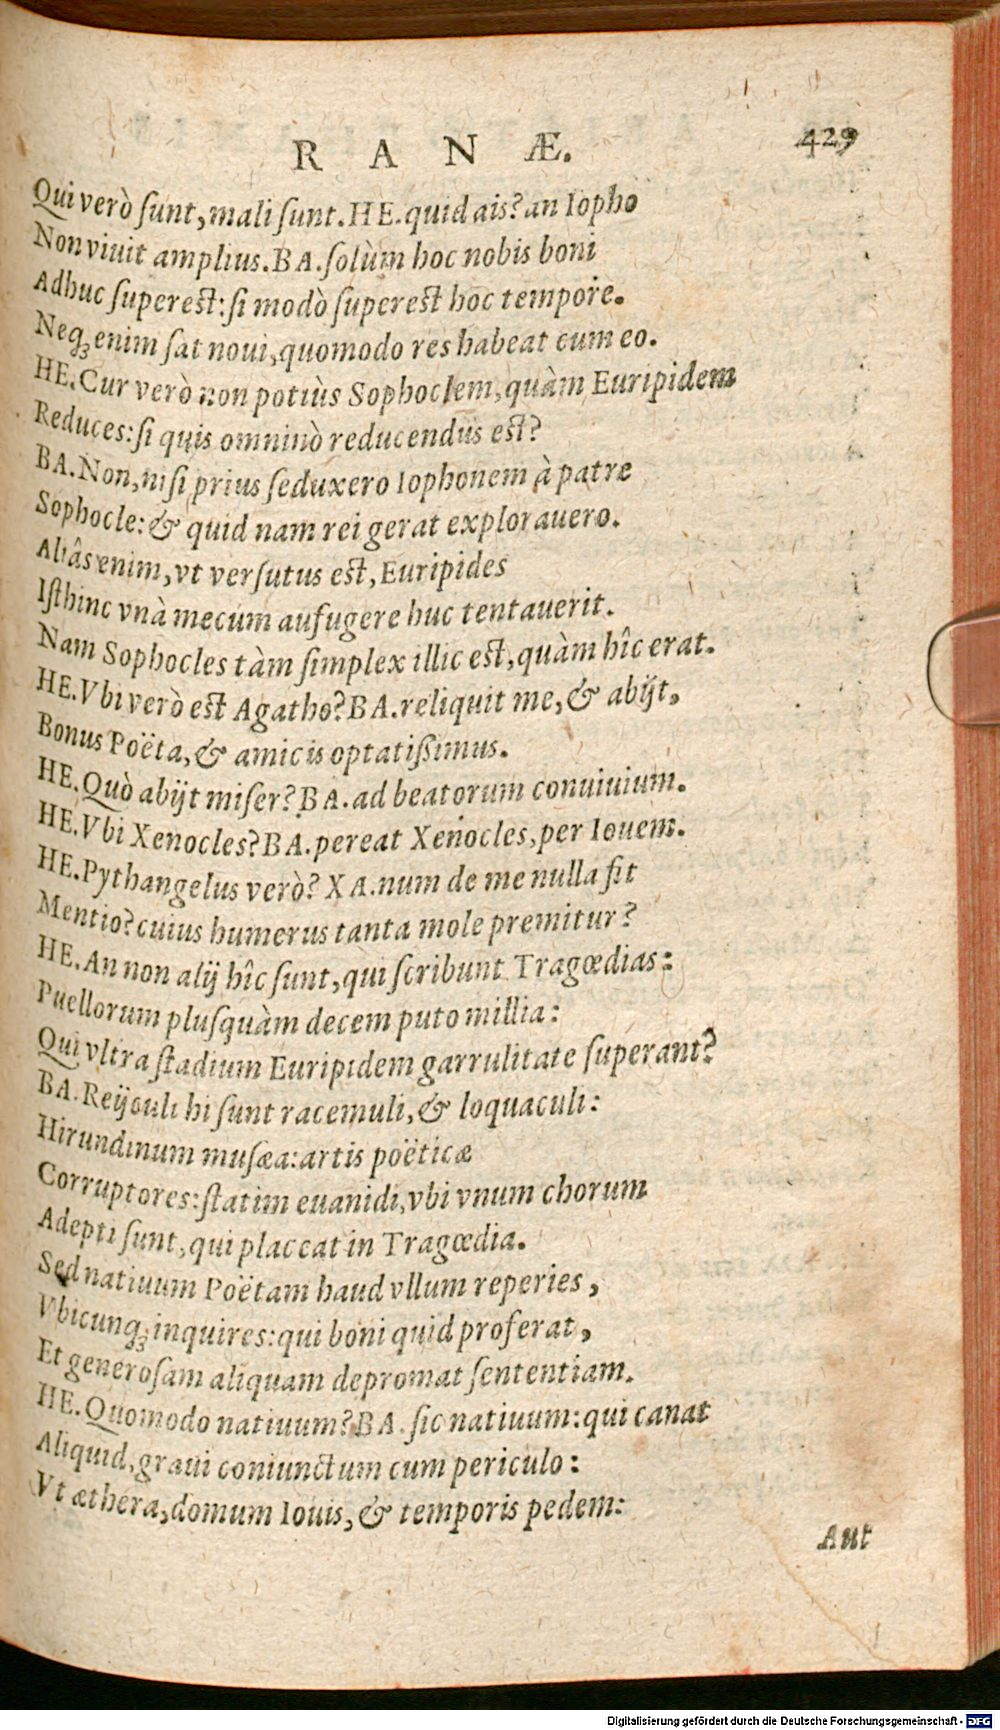 R A N Æ. 429
Qui verò ſunt, mali ſunt. HE. quid ais? an Iopho
Non viuit amplius. BA. ſolùm hoc nobis boni
Adhuc ſupereſt: ſi modò ſupereſt hoc tempore.
Neqꝫ enim ſat noui, quomodo res habeat cum eo.
HE. Cur verò non potiùs Sophoclem, quàm Euripidem
Reduces: ſi quis omninò reducendus eſt?
BA. Non, niſi prius ſeduxero Iophonem à patre
Sophocle: & quid nam rei gerat explorauero.
Aliâs enim, vt verſutus eſt, Euripides
Iſthinc vnà mecum aufugere huc tentauerit.
Nam Sophocles tàm ſimplex illic eſt, quàm hîc erat.
HE. Vbi verò eſt Agatho? BA. reliquit me, & abijt,
Bonus Poëta, & amicis optatiſſimus.
HE. Quò abijt miſer? BA. ad beatorum conuiuium.
HE. Vbi Xenocles? BA. pereat Xenocles, per Iouem.
HE. Pythangelus verò? XA. num de me nulla fit
Mentio? cuius humerus tanta mole premitur?
HE. An non alij hîc ſunt, qui ſcribunt Tragœdias:
Puellorum pluſquàm decem puto millia:
Qui vltra ſtadium Euripidem garrulitate ſuperant?
BA. Reijculi hi ſunt racemuli, & loquaculi:
Hirundinum muſæa: artis poëticæ
Corruptores: ſtatim euanidi, vbi vnum chorum
Adepti ſunt, qui placcat in Tragœdia.
Sed natiuum Poëtam haud vllum reperies,
Vbicunqꝫ inquires: qui boni quid proferat,
Et generoſam aliquam depromat ſententiam.
HE. Quomodo natiuum? BA. ſic natiuum: qui canat
Aliquid, graui coniunctum cum periculo:
Vt æthera, domum Iouis, & temporis pedem:
Aut
Digitalisierung gefördert durch die Deutsche Forschungsgemeinschaft - DFG